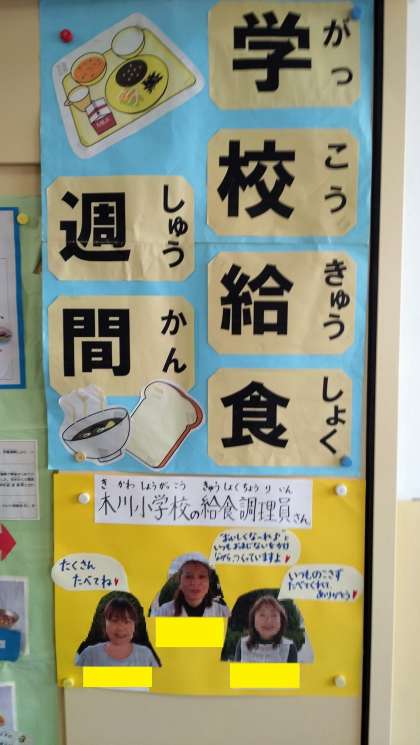 学校給食
がっこうきゅうしょく
週間
しゅうかん
きかわしょうがっこう きゅうしょくちょうりいん
木川小学校の給食調理員さん
たくさん
たべてね♥
"おいしくなーれ♪"と
いつもおまじないをかけ
ながら、つくっていますよ♥
いつものこさず
たべてくれて、
ありがとう♥
MILK